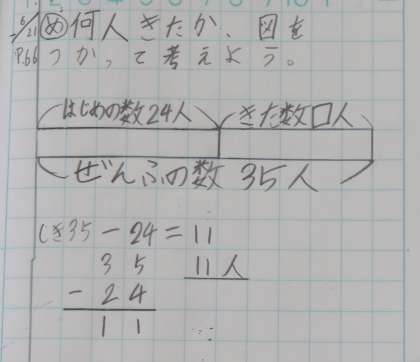 6/21 め 何人きたか、図を
P.66 つかって考えよう。
はじめの数24人 きた数□人
ぜんぶの数 35人
しき35-24=11
35 11人
-24
11